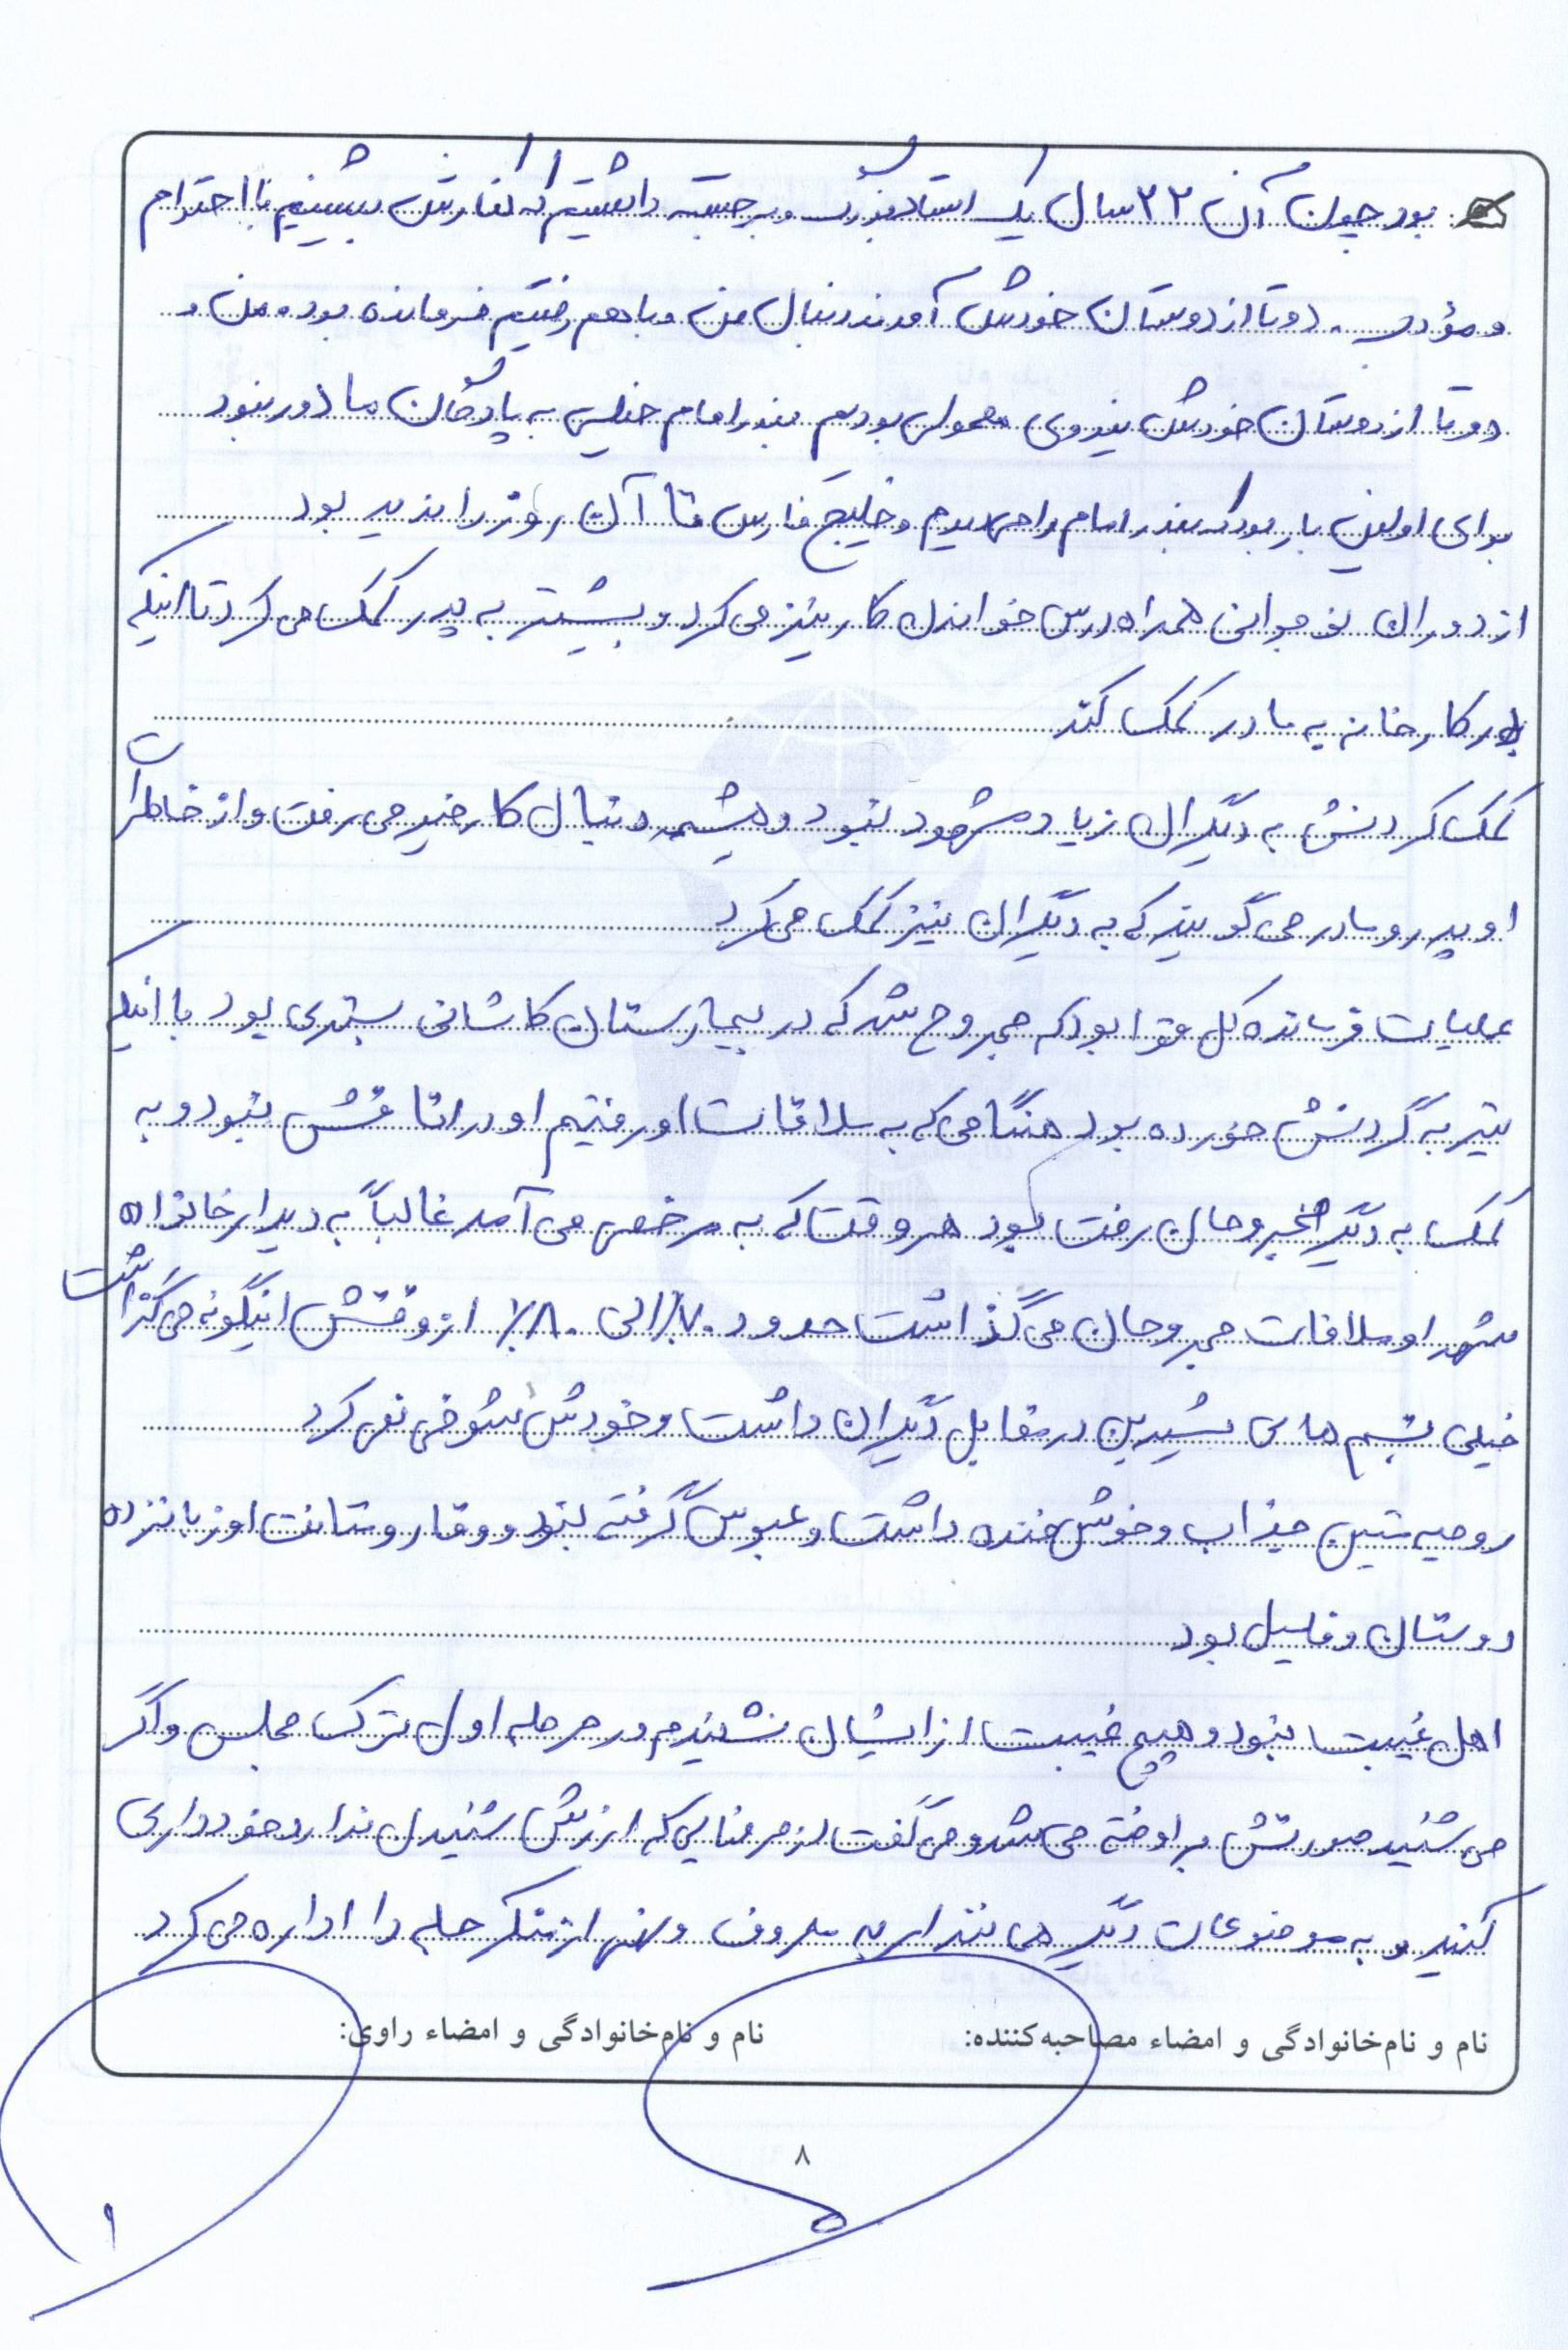 بود چون آن ۲۲ سال یک استاد بزرگ و برجسته داشتیم که کنارش بنشینیم با احترام
و مؤدب. دو تا از دوستان خودش آمدند دنبال من و با هم رفتیم فرمانده بود و من و
دو تا از دوستان خودش نیروی معمولی بودیم بندر امام خیلی به پادگان ما دور نبود
برای اولین بار بود که بندر امام را می دیدم و خلیج فارس تا آن روز را ندیده بود
از دوران نوجوانی همراه درس خواندن کار نیز می کرد و بیشتر به پدر کمک می کرد تا اینکه
در کار خانه به مادر کمک کند
کمک کردنش به دیگران زیاد مشهود نبود و همیشه دنبال کار خیر می رفت و از خاطرات
او پدر و مادر می گویند که به دیگران نیز کمک می کرد
عملیات فرمانده کل قوا بود که مجروح شد که در بیمارستان کاشانی بستری بود با اینکه
تیر به گردنش خورده بود هنگامی که به ملاقات او رفتیم او در اتاقش نبود و به
کمک به دیگر مجروحان رفته بود هر وقت که به مرخصی می آمد غالباً به دیدار خانواده
شهدا و ملاقات مجروحان می گذاشت حدود ۷۰٪ الی ۸۰٪ از وقتش اینگونه می گذاشت
خیلی تبسم های شیرین در مقابل دیگران داشت و خودش شوخی نمی کرد
روحیه متین جذاب و خوش خنده داشت و عبوس گرفته نبود و وقار و متانت او زبانزد
دوستان و فامیل بود
اهل غیبت نبود و هیچ غیبت از ایشان نشنیدم در مرحله اول ترک مجلس و اگر
می شنید صورتش برافروخته می شد و می گفت از حرفهایی که ارزش شنیدن ندارد خودداری
کنید و به موضوعات دیگر می پرداخت امر به معروف و نهی از منکر جلسه را اداره می کرد
نام و نام‌خانوادگی و امضاء مصاحبه‌کننده: نام و نام‌خانوادگی و امضاء راوی:
۸